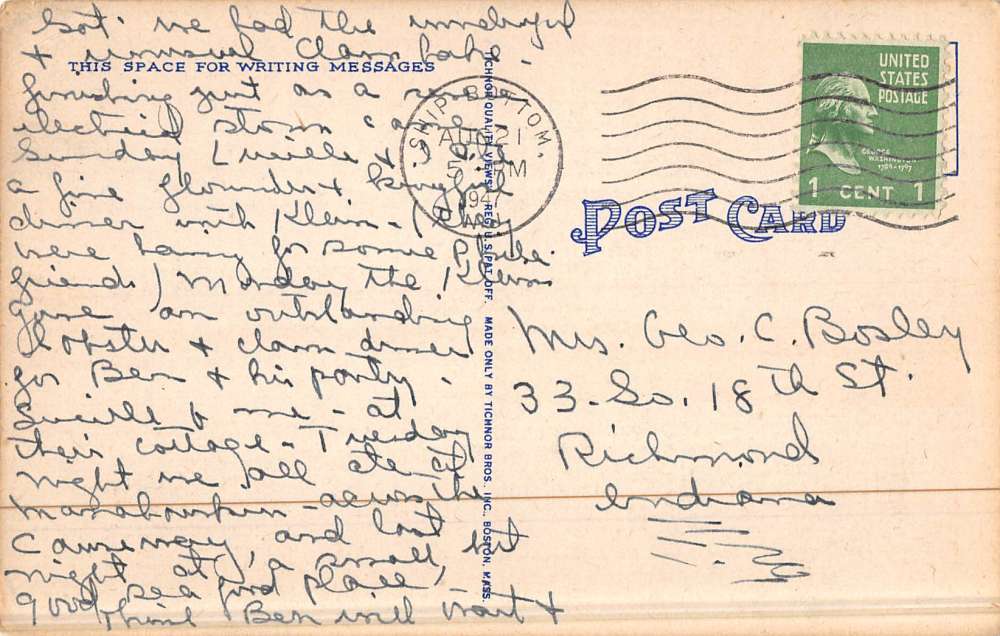 Sat. we had the wonderful
+ unusual Clam bake -
THIS SPACE FOR WRITING MESSAGES
finishing just as a
electrical storm came
Sunday Lucille & I had
a fine flounder +
dinner with Klein - (They
were having for some
friends) Monday the Kleins
gave an outstanding
lobster + clam dinner
for Ben + his party.
Lucille & me - at
their cottage - Tuesday
night we all ate at
Manahawkin - across the
Causeway, and last
night at a small, but
good sea food place,
think Ben will want +
SHIP BOTTOM.
AUG 21
5 PM
194
N.J.
TICHNOR QUALITY VIEWS REG. U.S. PAT. OFF. MADE ONLY BY TICHNOR BROS. INC., BOSTON, MASS.
UNITED
STATES
POSTAGE
GEORGE
WASHINGTON
1789-1797
1 CENT 1
POST CARD
Mrs. Geo. C. Bosley
33 - So. 18th St.
Richmond
Indiana